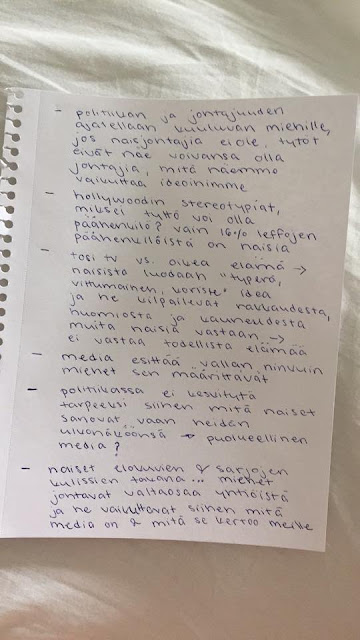 - politiikan ja johtajuuden
ajatellaan kuuluvan miehille,
jos naisjohtajia ei ole, tytöt
eivät näe voivansa olla
johtajia, mitä näemme
vaikuttaa ideoihimme
- hollywoodin stereotypiat,
miksei tyttö voi olla
päähenkilö? vain 16% leffojen
päähenkilöistä on naisia
- tosi tv vs. oikea elämä →
naisista luodaan "typerä,
vittumainen, koriste" idea
ja he kilpailevat rakkaudesta,
huomiosta ja kauneudesta
muita naisia vastaan →
ei vastaa todellista elämää
- media esittää vallan niinkuin
miehet sen määrittävät
- politiikassa ei keskitytä
tarpeeksi siihen mitä naiset
sanovat vaan heidän
ulkonäköönsä → puolueellinen
media?
- naiset elokuvien & sarjojen
kulissien takana... miehet
johtavat valtaosaa yhtiöistä
ja he vaikuttavat siihen mitä
media on & mitä se kertoo meille